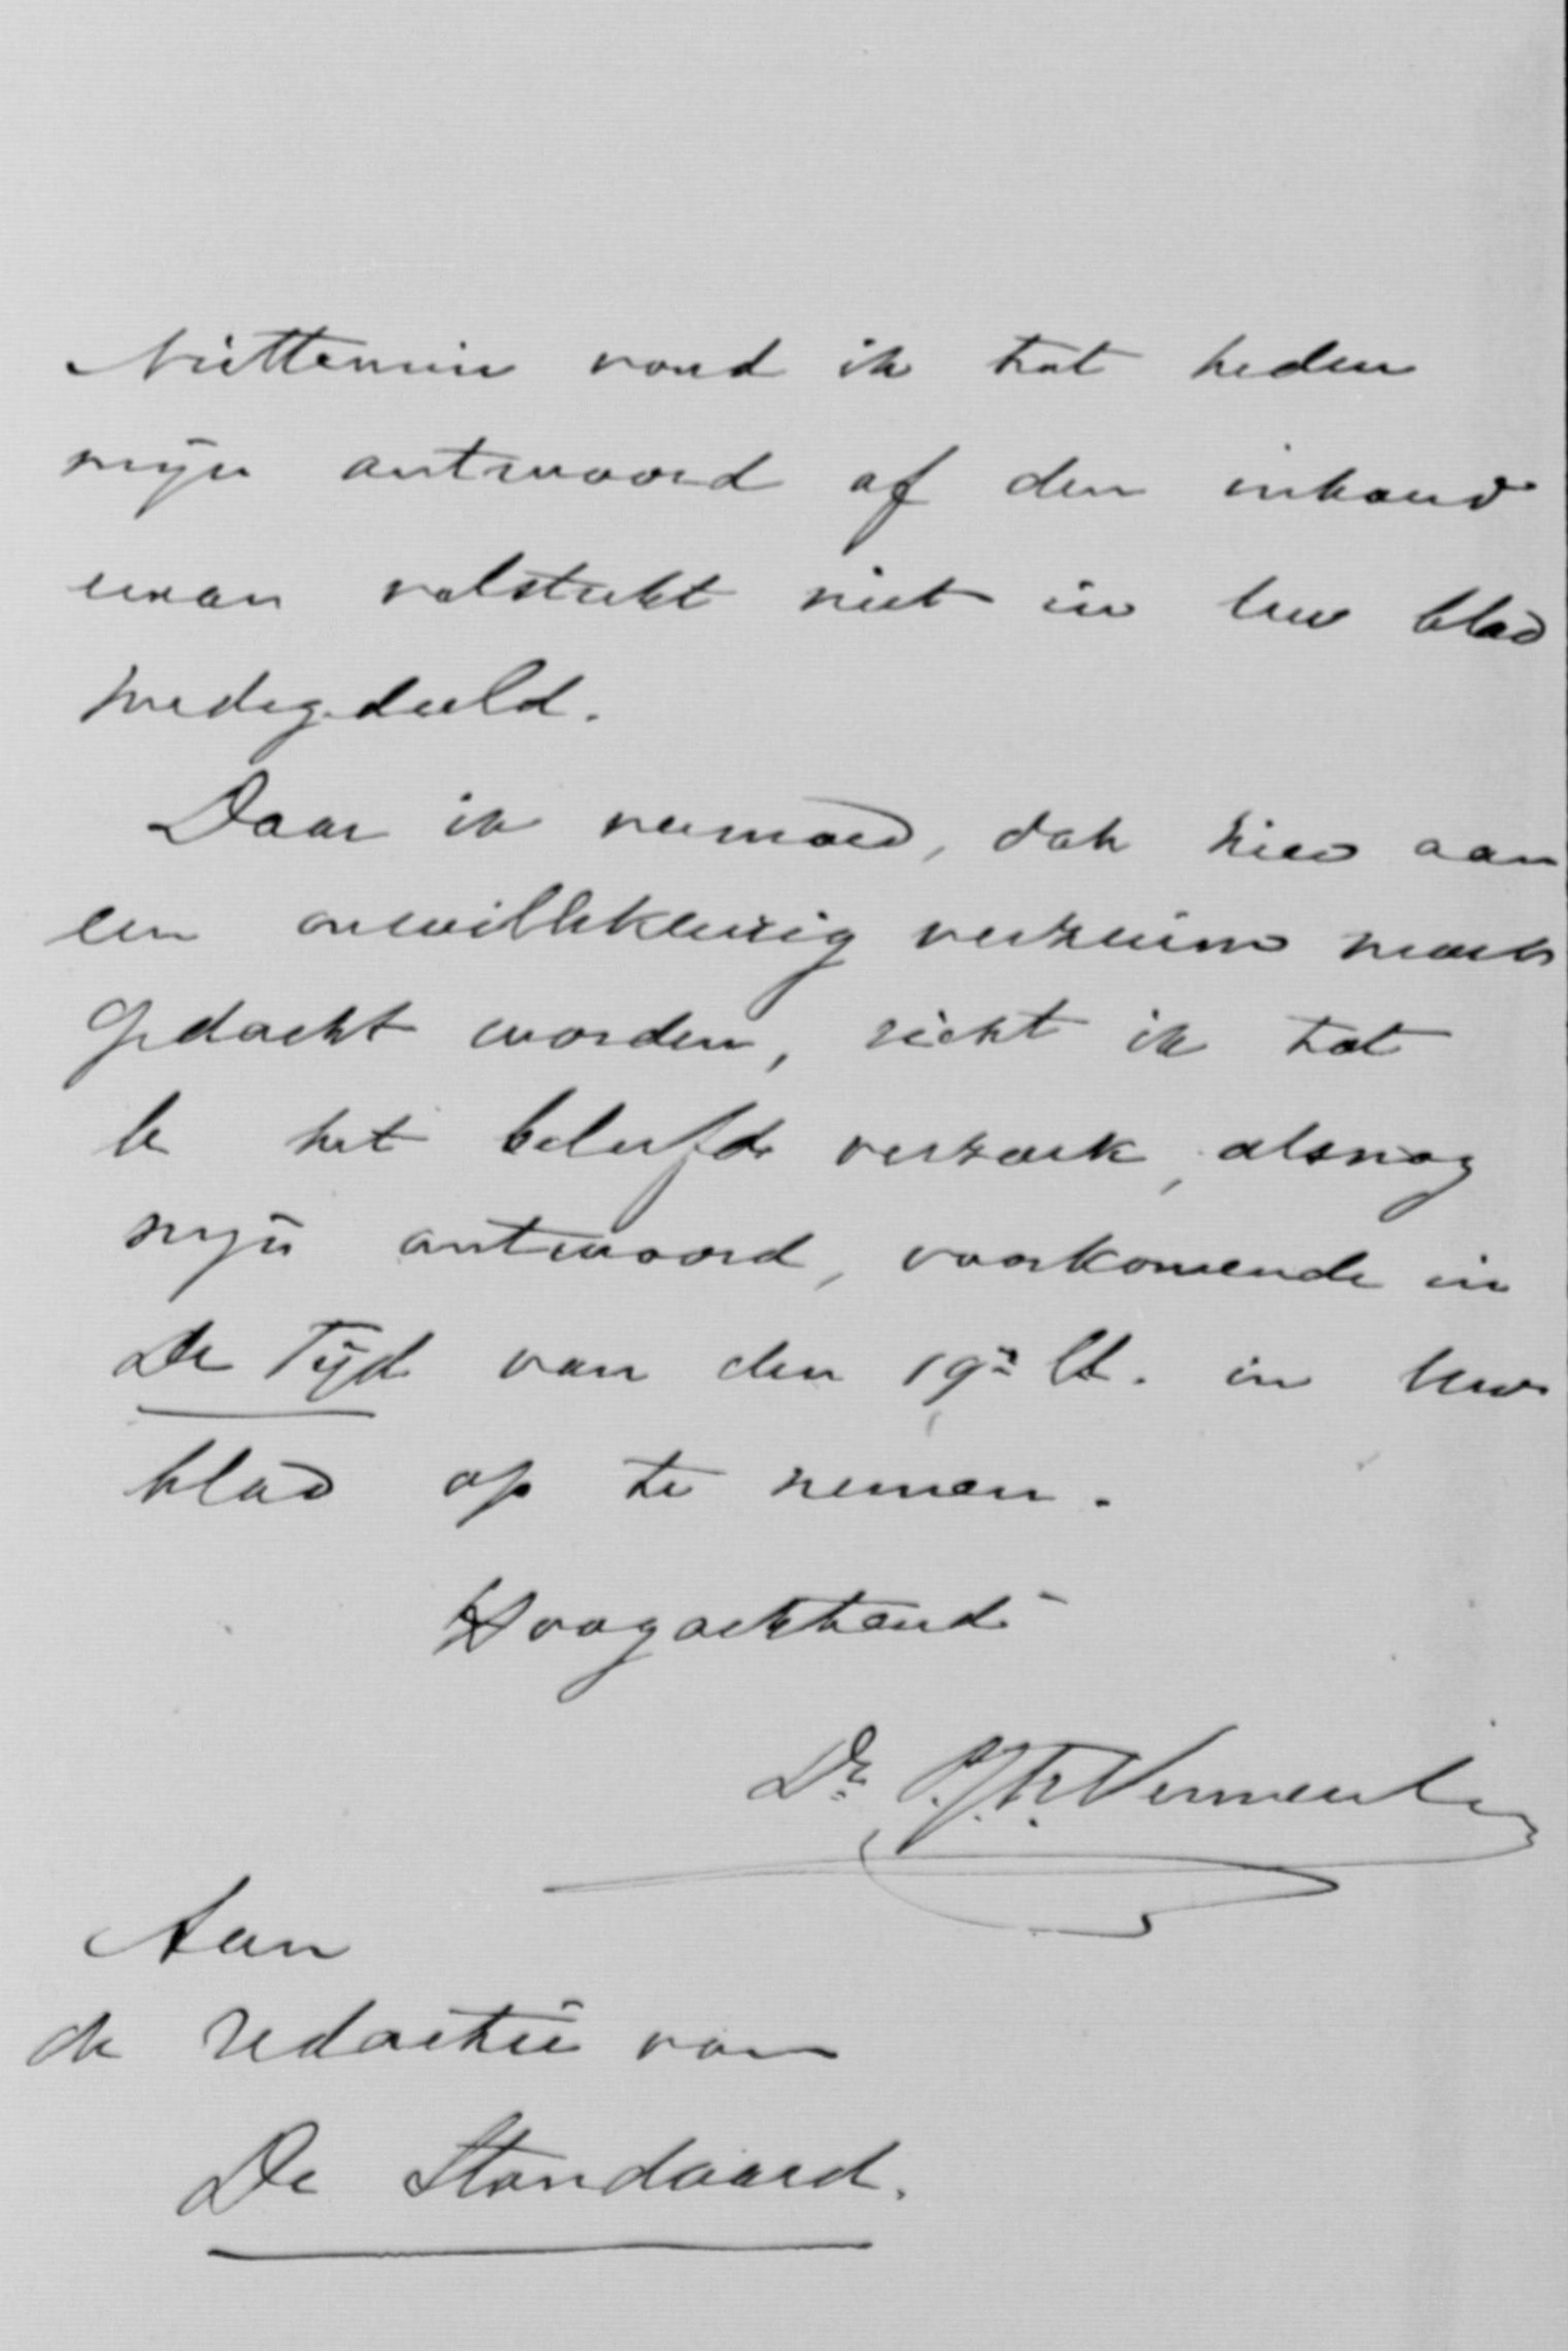 Niettemin vond ik tot heden
mijn antwoord of den inhoud
ervan volstrekt niet in Uw blad
medegedeeld.
Daar ik vermoed, dat hier aan
een onwillekeurig verzuim moet
gedacht worden, richt ik tot
U het beleefde verzoek, alsnog
mijn antwoord, voorkomende in
De Tijd van den 19n ll. in Uw
blad op te nemen.
Hoogachtend
Dr. P.J.F. Vermeulen
Aan
de redactie van
De Standaard.